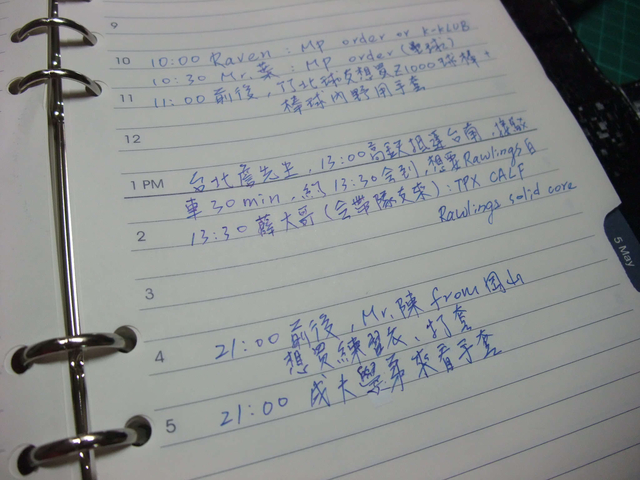 9
10 10:00 Raven : Mp order or k-klub
10:30 Mr.葉 : Mp order (壘球)
11 11:00 前後, 竹北球友想買Z1000球棒,
棒球內野用手套
12
1 PM 台北詹先生, 13:00高鐵抵達台南,
車30 min, 約 13:30 會到, 想要Rawlings
2 13:30 薛大哥(会帶隊友來) : TPX CALF
Rawlings solid core
3
5 May
4 21:00 前後, Mr.陳 from 岡山
想買練習衣、打套
5 21:00 成大學弟來看手套